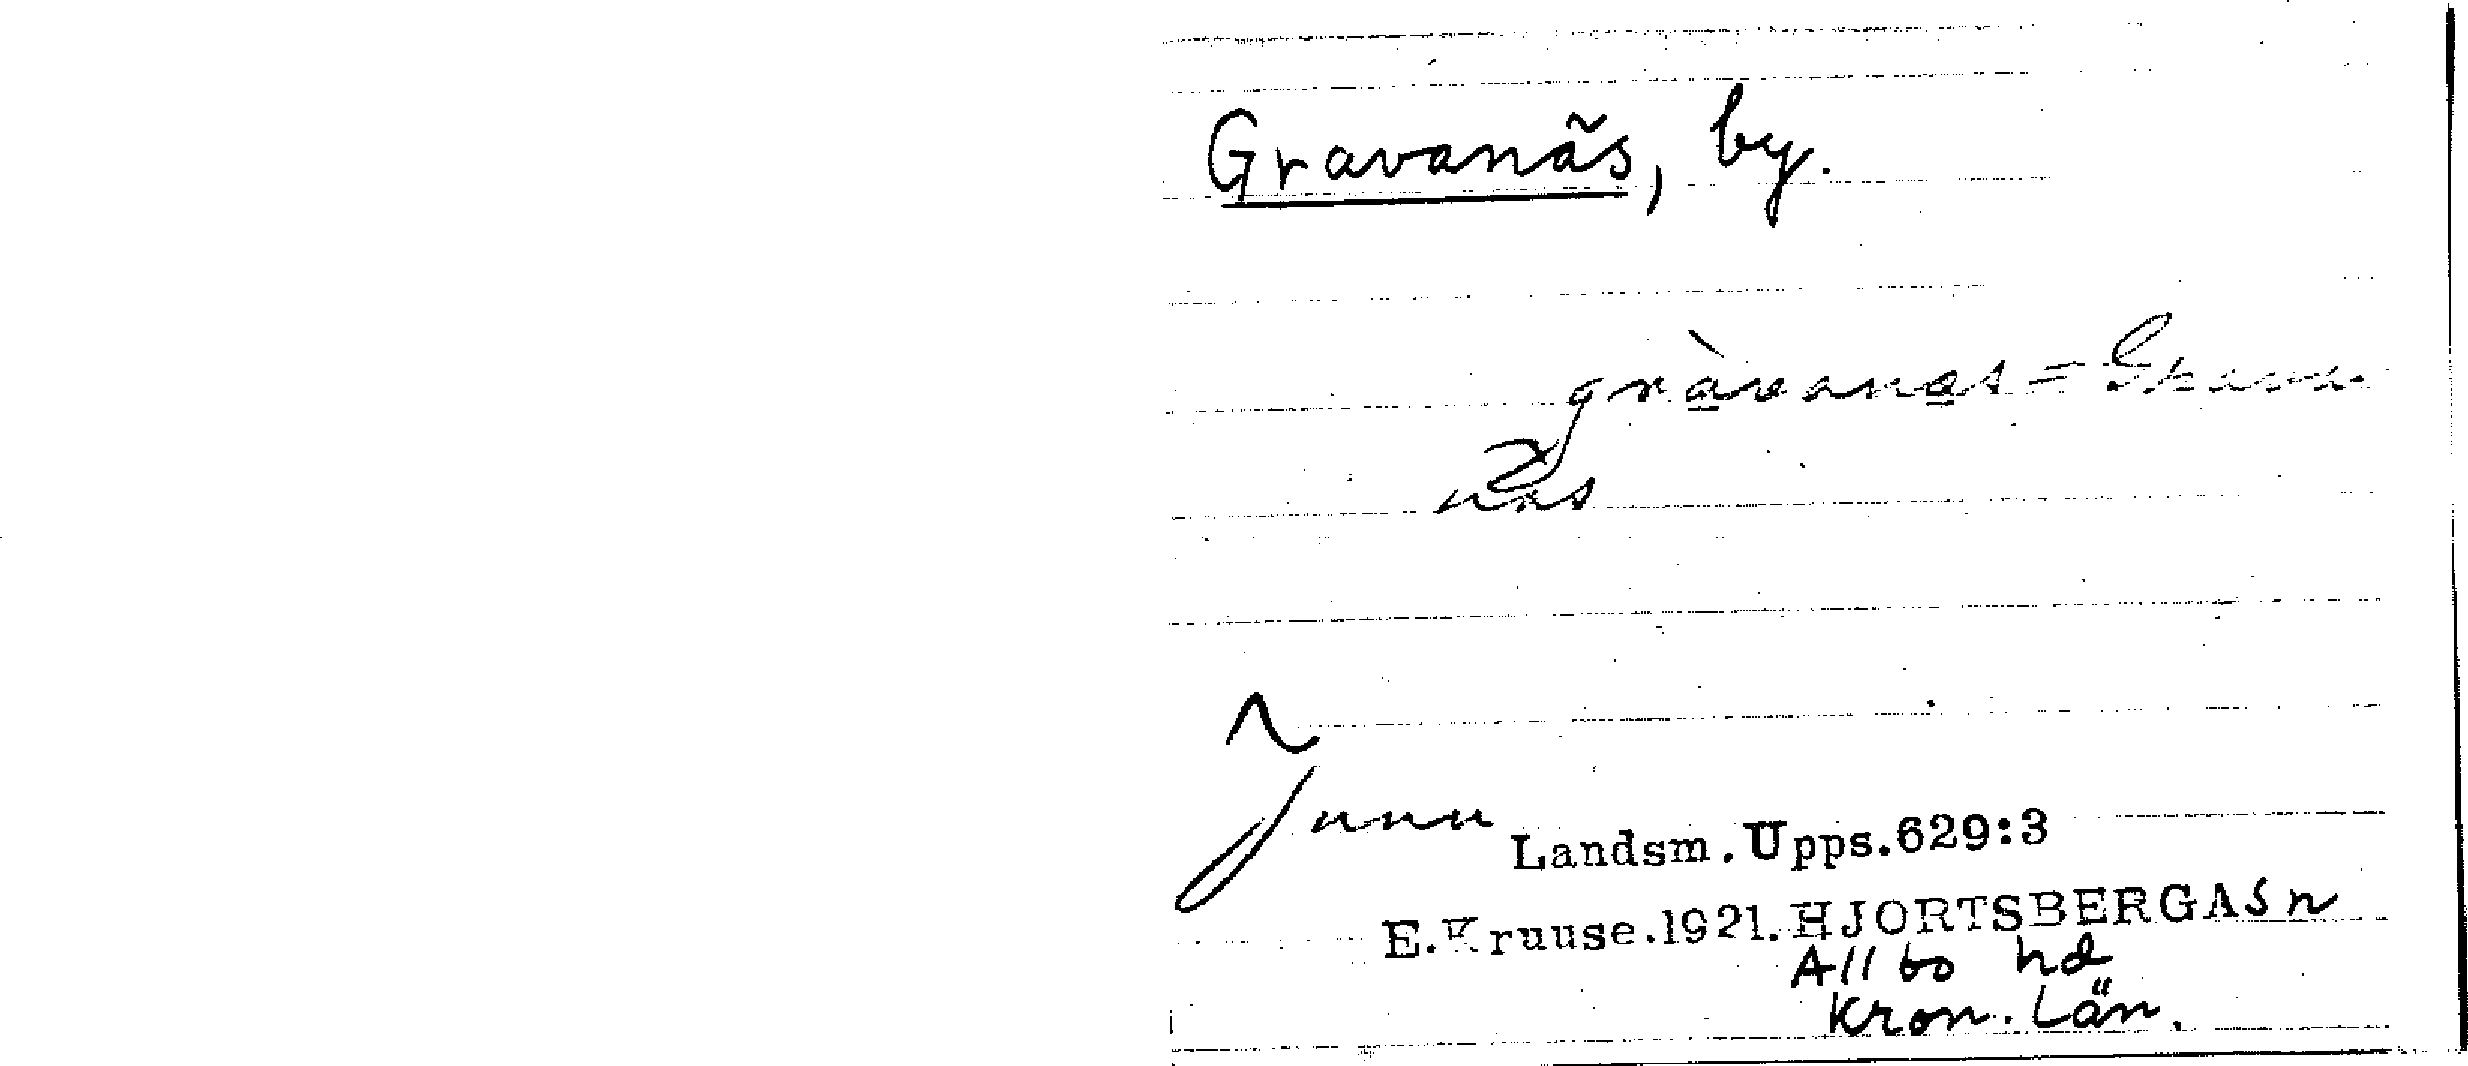 Gravanäs, by.
gràvanas = Grava-
näs
Landsm. Upps. 629:3
E. Kruuse. 1921. HJORTSBERGA Sn
Allbo hd
Kron. Län.